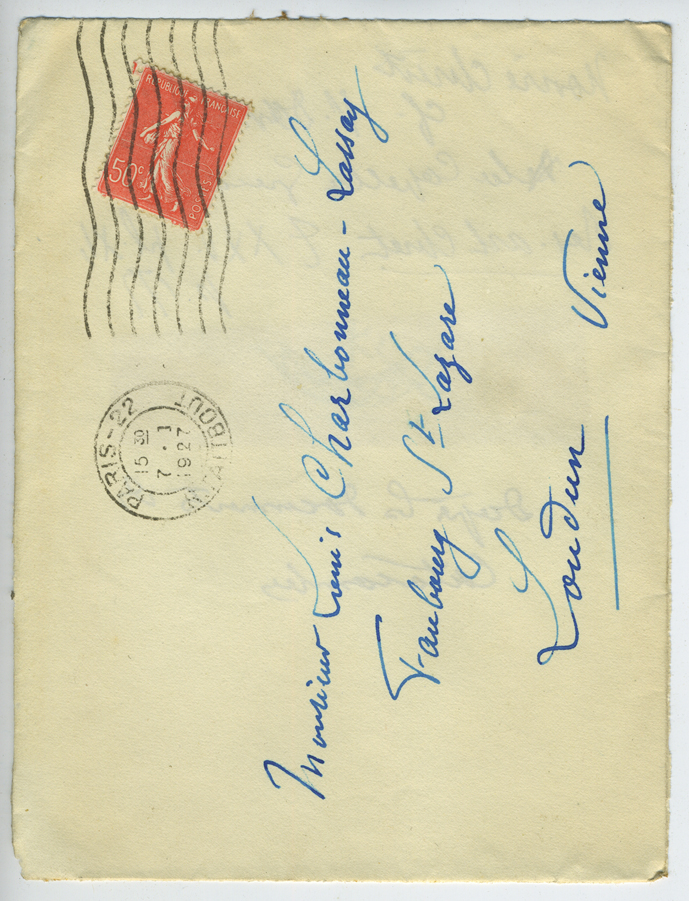 REPUBLIQUE FRANÇAISE
50c
POSTES
PARIS-22
15 30
7 - 1
1927
TAITBOUT
Monsieur Louis Charbonneau-Lassay
Faubourg St Lazare
Loudun
Vienne